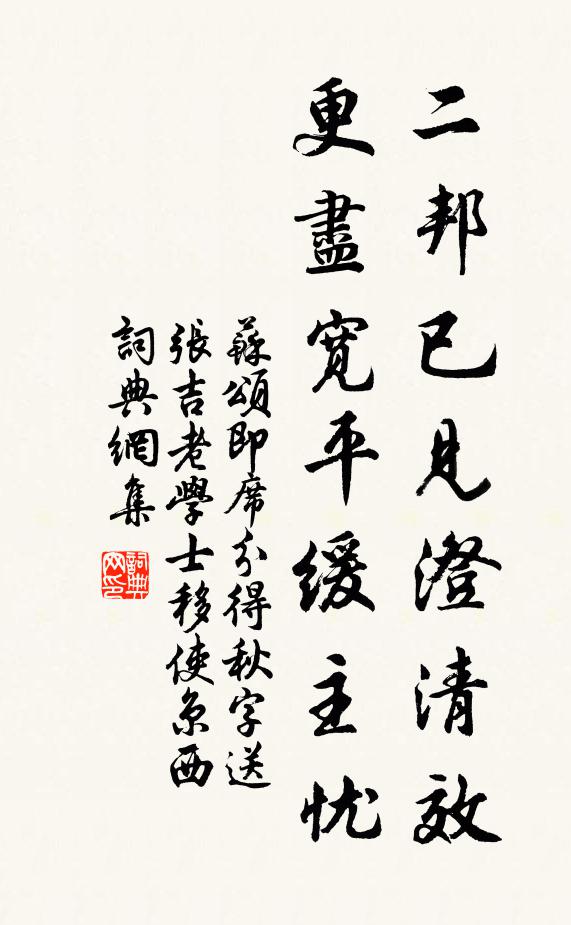 二邦已見澄清效
更盡寬平緩主忧
蘇頌即席分得秋字送
張吉老學士移使京西
詞典網集
詞典网印